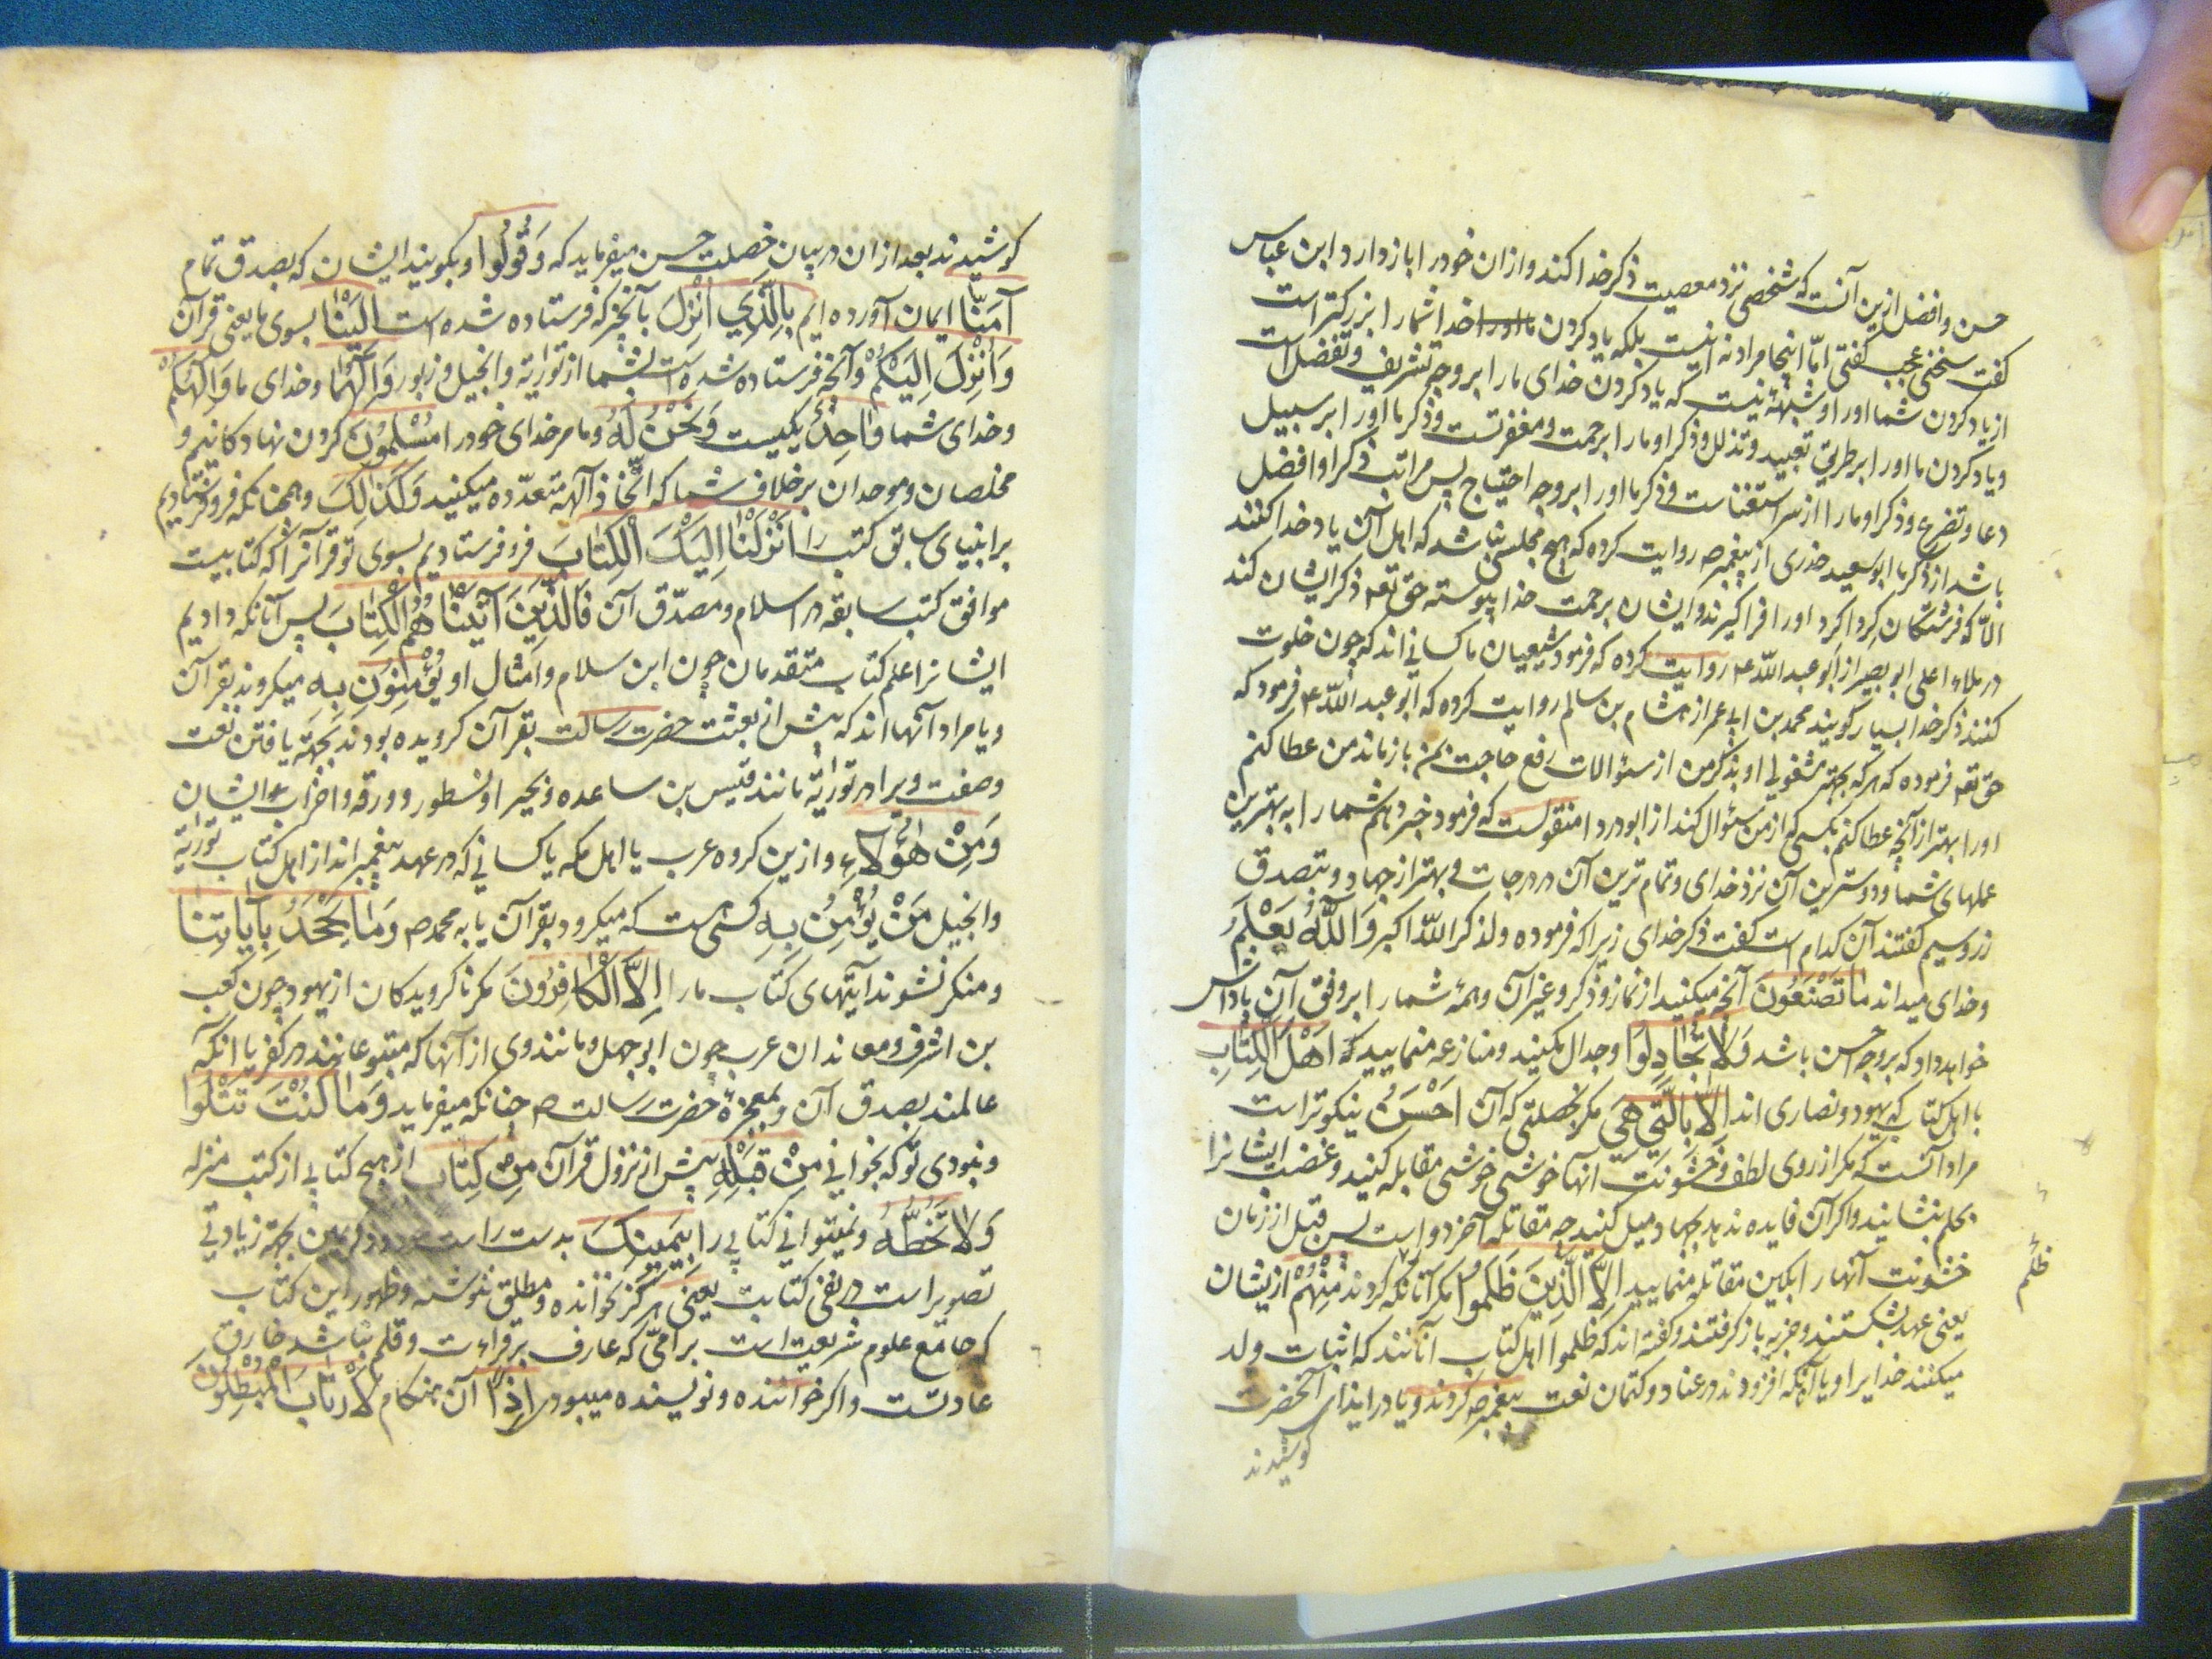 حسن و افضل ازین آنست که شخصی نزد معصیت ذکر خدا کند و ازان خود را باز دارد ابن عباس
گفت سخنی عجب گفتی امّا اینجا مراد نه اینست بلکه یاد کردن خدا شما را بزرگتر است
از یاد کردن شما او را و شبهۀ نیست که یاد کردن خدای ما را بر وجه تشریف و تفضل است
و یاد کردن ما او را بر طریق تعبید و تذلل و ذکر او ما را برحمت و مغفرتست و ذکر ما او را بر سبیل
دعا و تضرع و ذکر او ما را از سر استغناست و ذکر ما او را بر وجه احتیاج پس مراتب ذکر او افضل
باشد از ذکر ما ابو سعید خدری از پیغمبر ص روایت کرده که هیچ مجلسی نباشد که اهل آن یاد خدا کنند
الّا که فرشتگان گرداگرد او را فراگیرند و ایشان برحمت خدا پیوسته حق تعه ذکر ایشان کند
در ملاء اعلی ابو بصیر از ابو عبد اللّه ع روایت کرده که فرمود شیعیان ما کسانی اند که چون خلوت
کنند ذکر خدا بسیار گویند محمد بن ابی عمر از هشام بن سالم روایت کرده که ابو عبد اللّه ع فرمود که
حق تعه فرموده که هر که بجهة مشغولی او بذکر من از سئوالات رفع حاجت بمن باز ماند من عطا کنم
او را بهتر از آنچه عطا کنم بکسی که از من سئوال کند از ابو دردا منقولست که فرمود خبر دهم شما را به بهترین
عملهای شما و دوسترین آن نزد خدای و تمام ترین آن در درجات و بهتر از جهاد و تصدق
زر و سیم گفتند آن کدام است گفت ذکر خدای زیرا که فرموده ولذکر اللّه اکبر وَاللّٰهُ یَعْلَمُ
و خدای میداند مٰا تَصْنَعُونَ آنچه میکنید از نماز و ذکر و غیر آن و همۀ شما را بر وفق آن پاداش
خواهد داد که بر وجه احسن باشد وَلاٰ تُجٰادِلُوا و جدال مکنید و منازعه منمایید که اَهْلَ الْکِتٰابِ
با اهل کتاب که یهود و نصاری اند اِلاّٰ بِالَّتِی هِیَ مگر بخصلتی که آن اَحْسَنُ نیکوتر است
مراد آنست که مگر از روی لطف و خشونت انها خوشی خوشی مقابله کنید و غضب ایشانرا
بحلم بنشانید و اگر آن فایده ندهد بجهاد میل کنید چه مقاتله آخر دواست پس قبل از زمان
خشونت آنها را بکین مقاتله منمایید اِلاَّ الَّذِینَ ظَلَمُوا مگر آنانکه کردند مِنْهُمْ ازیشان
ظلم
یعنی عهد بشکستند و جزیه باز گرفتند و گفته اند که ظلموا اهل کتاب آنانند که اثبات ولد
میکنند خدایرا و یا آنکه افزودند در عناد و کتمان نعت پیغمبر ص کردند و یا در ایذای آنحضرت
کوشیدند
کوشیدند بعد ازان در بیان خصلت حسن میفرماید که وَقُولُوا و بگویند ایشان که بصدق تمام
آمَنّٰا ایمان آورده ایم بِالَّذِی اُنْزِلَ بآنچیز که فرستاده شده است اِلَیْنٰا بسوی ما یعنی قرآن
وَاُنْزِلَ اِلَیْکُمْ و آنچه فرستاده شده است بشما از توریة و انجیل و زبور وَاِلٰهُنٰا و خدای ما وَاِلٰهُکُمْ
و خدای شما وٰاحِدٌ یکیست وَنَحْنُ لَهُ و ما مر خدای خود را مُسْلِمُونَ کردن نهادکانیم و
مخلصان و موحدان بر خلاف شما که اتّخاذ آلهه متعدّده میکنید وَکَذٰلِکَ و همچنانکه فرو فرستادیم
بر انبیای سابق کتب را اَنْزَلْنٰا اِلَیْکَ الْکِتٰابَ فرو فرستادیم بسوی تو قرآنرا که کتابیست
موافق کتب سابقه در اسلام و مصدّق آن فَالَّذِینَ آتَیْنٰاهُمُ الْکِتٰابَ پس آنانکه دادیم
ایشانرا علم کتاب متقدمان چون ابن سلام و امثال او یُؤْمِنُونَ بِهِ میکروند بقرآن
و یا مراد آنها اند که پیش از بعثت حضرت رسالت بقرآن کرویده بودند بجهة یافتن نعت
و صفت ویرا در توریة مانند قیس بن ساعده و بحیرا و نسطور و ورقه و اضراب ایشان
وَمِنْ هٰؤُلاٰءِ و ازین کروه عرب یا اهل مکه یا کسانی که در عهد پیغمبر اند از اهل کتاب توریة
و انجیل مَنْ یُؤْمِنُ بِهِ کسی هست که میکرود بقرآن یا به محمد ص وَمٰا یَجْحَدُ بِآیٰاتِنٰا
و منکر نشوند آیتهای کتاب ما را اِلاَّ الْکٰافِرُونَ مگر ناکرویدکان از یهود چون کعب
بن اشرف و معاندان عرب چون ابو جهل و مانند وی از آنها که متبوعانند در کفر یا انکه
عالمند بصدق آن و بمعجزۀ حضرت رسالت ص چنانکه میفرماید وَمٰا کُنْتَ تَتْلُوا
و نبودی تو که بخوانی مِنْ قَبْلِهِ پیش از نزول قرآن مِنْ کِتٰابٍ از هیچ کتابی از کتب منزله
وَلاٰ تَخُطُّهُ و نمیتوانی کتابی را بِیَمِینِکَ بدست راست بجهة زیادتی
تصویر است در نفی کتابت یعنی هرگز نخوانده و مطلق ننوشته و ظهور این کتاب
که جامع علوم شریعت است بر امّی که عارف بر قراءت و قلم نباشد خارق
عادتست و اگر خواننده و نویسنده میبودی اِذًا آن هنکام لاٰرْتٰابَ الْمُبْطِلُونَ